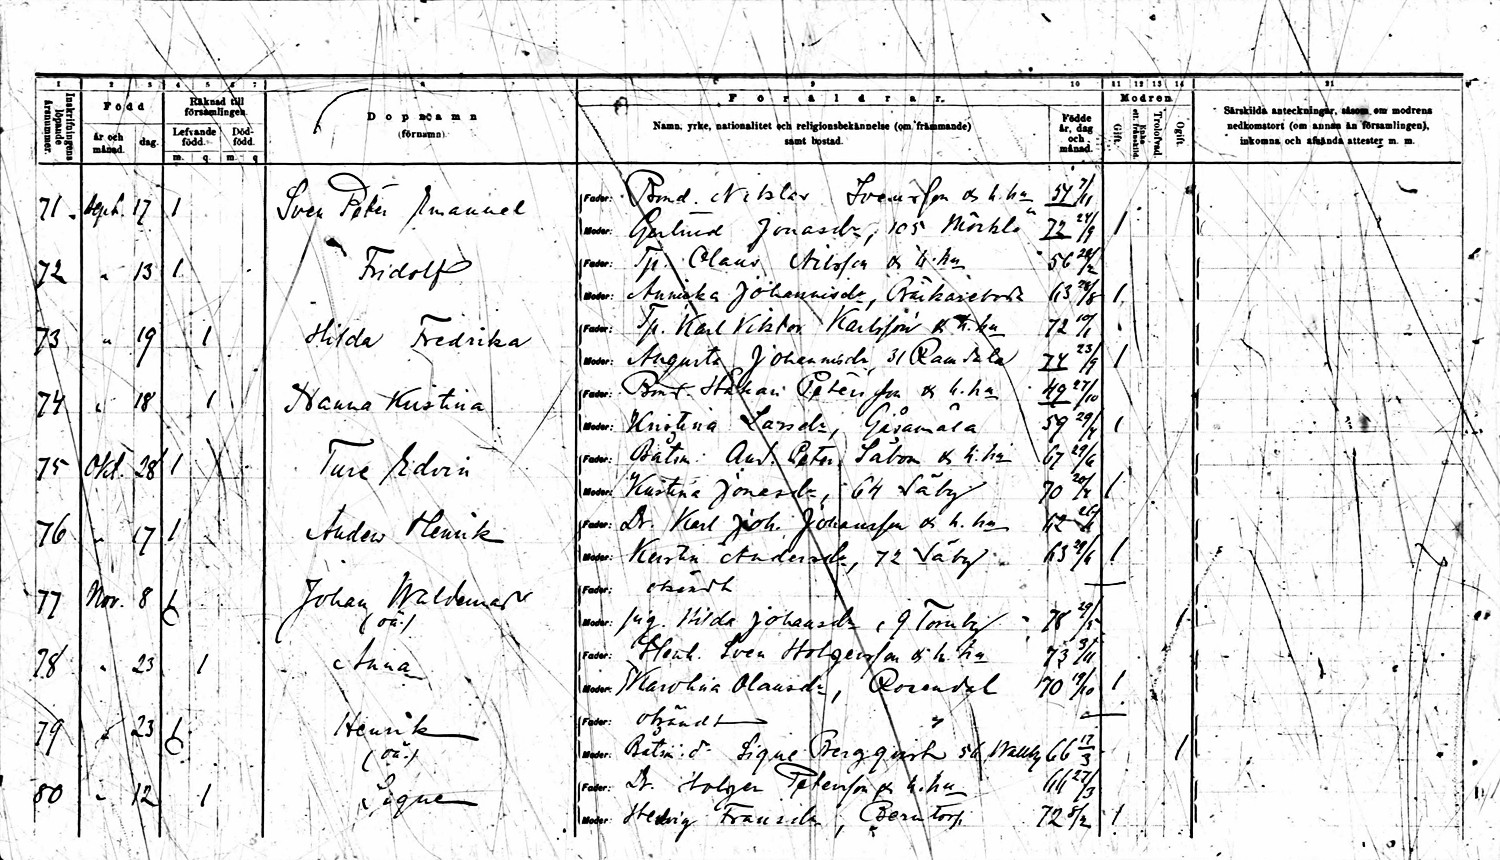 1 2 3 4 5 6 7 8 9 10 11 12 13 14 21
Inskrifningens löpande årsnummer.
Född
år och månad.
dag.
Räknad till församlingen.
Lefvande född.
Död-född.
m. q. m q
Dopnamn
(förnamn)
Föräldrar.
Namn, yrke, nationalitet och religionsbekännelse (om främmande)
samt bostad.
Födde år, dag och månad.
Modren
Gift.
Trolofvad.
Ogift
Särskilda anteckningar, såsom om modrens
nedkomstort (om annan än församlingen),
inkomna och afsända attester m. m.
71. Sept. 17 1 Sven Peter Emanuel
Fader: Bond. Niklas Svensson & h. hu 54 7/11
Moder: Gertrud Jonasdr, 105 72 24/9 1
72 " 13 1 Fridolf
Fader: Tp. Olaus Nilsson & h. hu 56
Moder: Annika Johannisdr, 63 28/8 1
73 " 19 1 Hilda Fredrika
Fader: Tp. Karl Viktor Karlsson & h. hu 72 10/1
Moder: Augusta Johannisdr, 31 Ramdala 74 23/9 1
74 " 18 1 Nanna Kristina
Fader: Bond. Håkan Petersson & h. hu 49 27/10
Moder: Kristina Larsdr, Gåsamåla 59 1
75 Okt. 28 1 Ture Edvin
Fader: Båtsm. And. Peter Säbom & h. hu 67
Moder: Kristina Jonasdr, 64 Säby 70 1
76 " 17 1 Anders Henrik
Fader: Dr. Karl Joh. Johansson & h. hu 62
Moder: Kerstin Andersdr, 72 Säby 63 1
77 Nov. 8 1 Johan Waldemar
(oä.)
Fader: okändt —
Moder: pig. Hilda Johansdr, 9 Tornby 78 29/5 1
78 " 23 1 Anna
Fader: Sven Holgersson & h. hu 73
Moder: Karolina Olausdr, Rosendal 70 19/10 1
79 " 23 1 Henrik
(oä.)
Fader: okändt —
Moder: Båtsm. d. Signe Bergqvist 56 Wallby 66 17/3 1
80 " 12 1 Signe
Fader: Dr. Holger Petersson & h. hu 66 27/3
Moder: Hedvig Fransdr, Berntorp 72 8/2 1